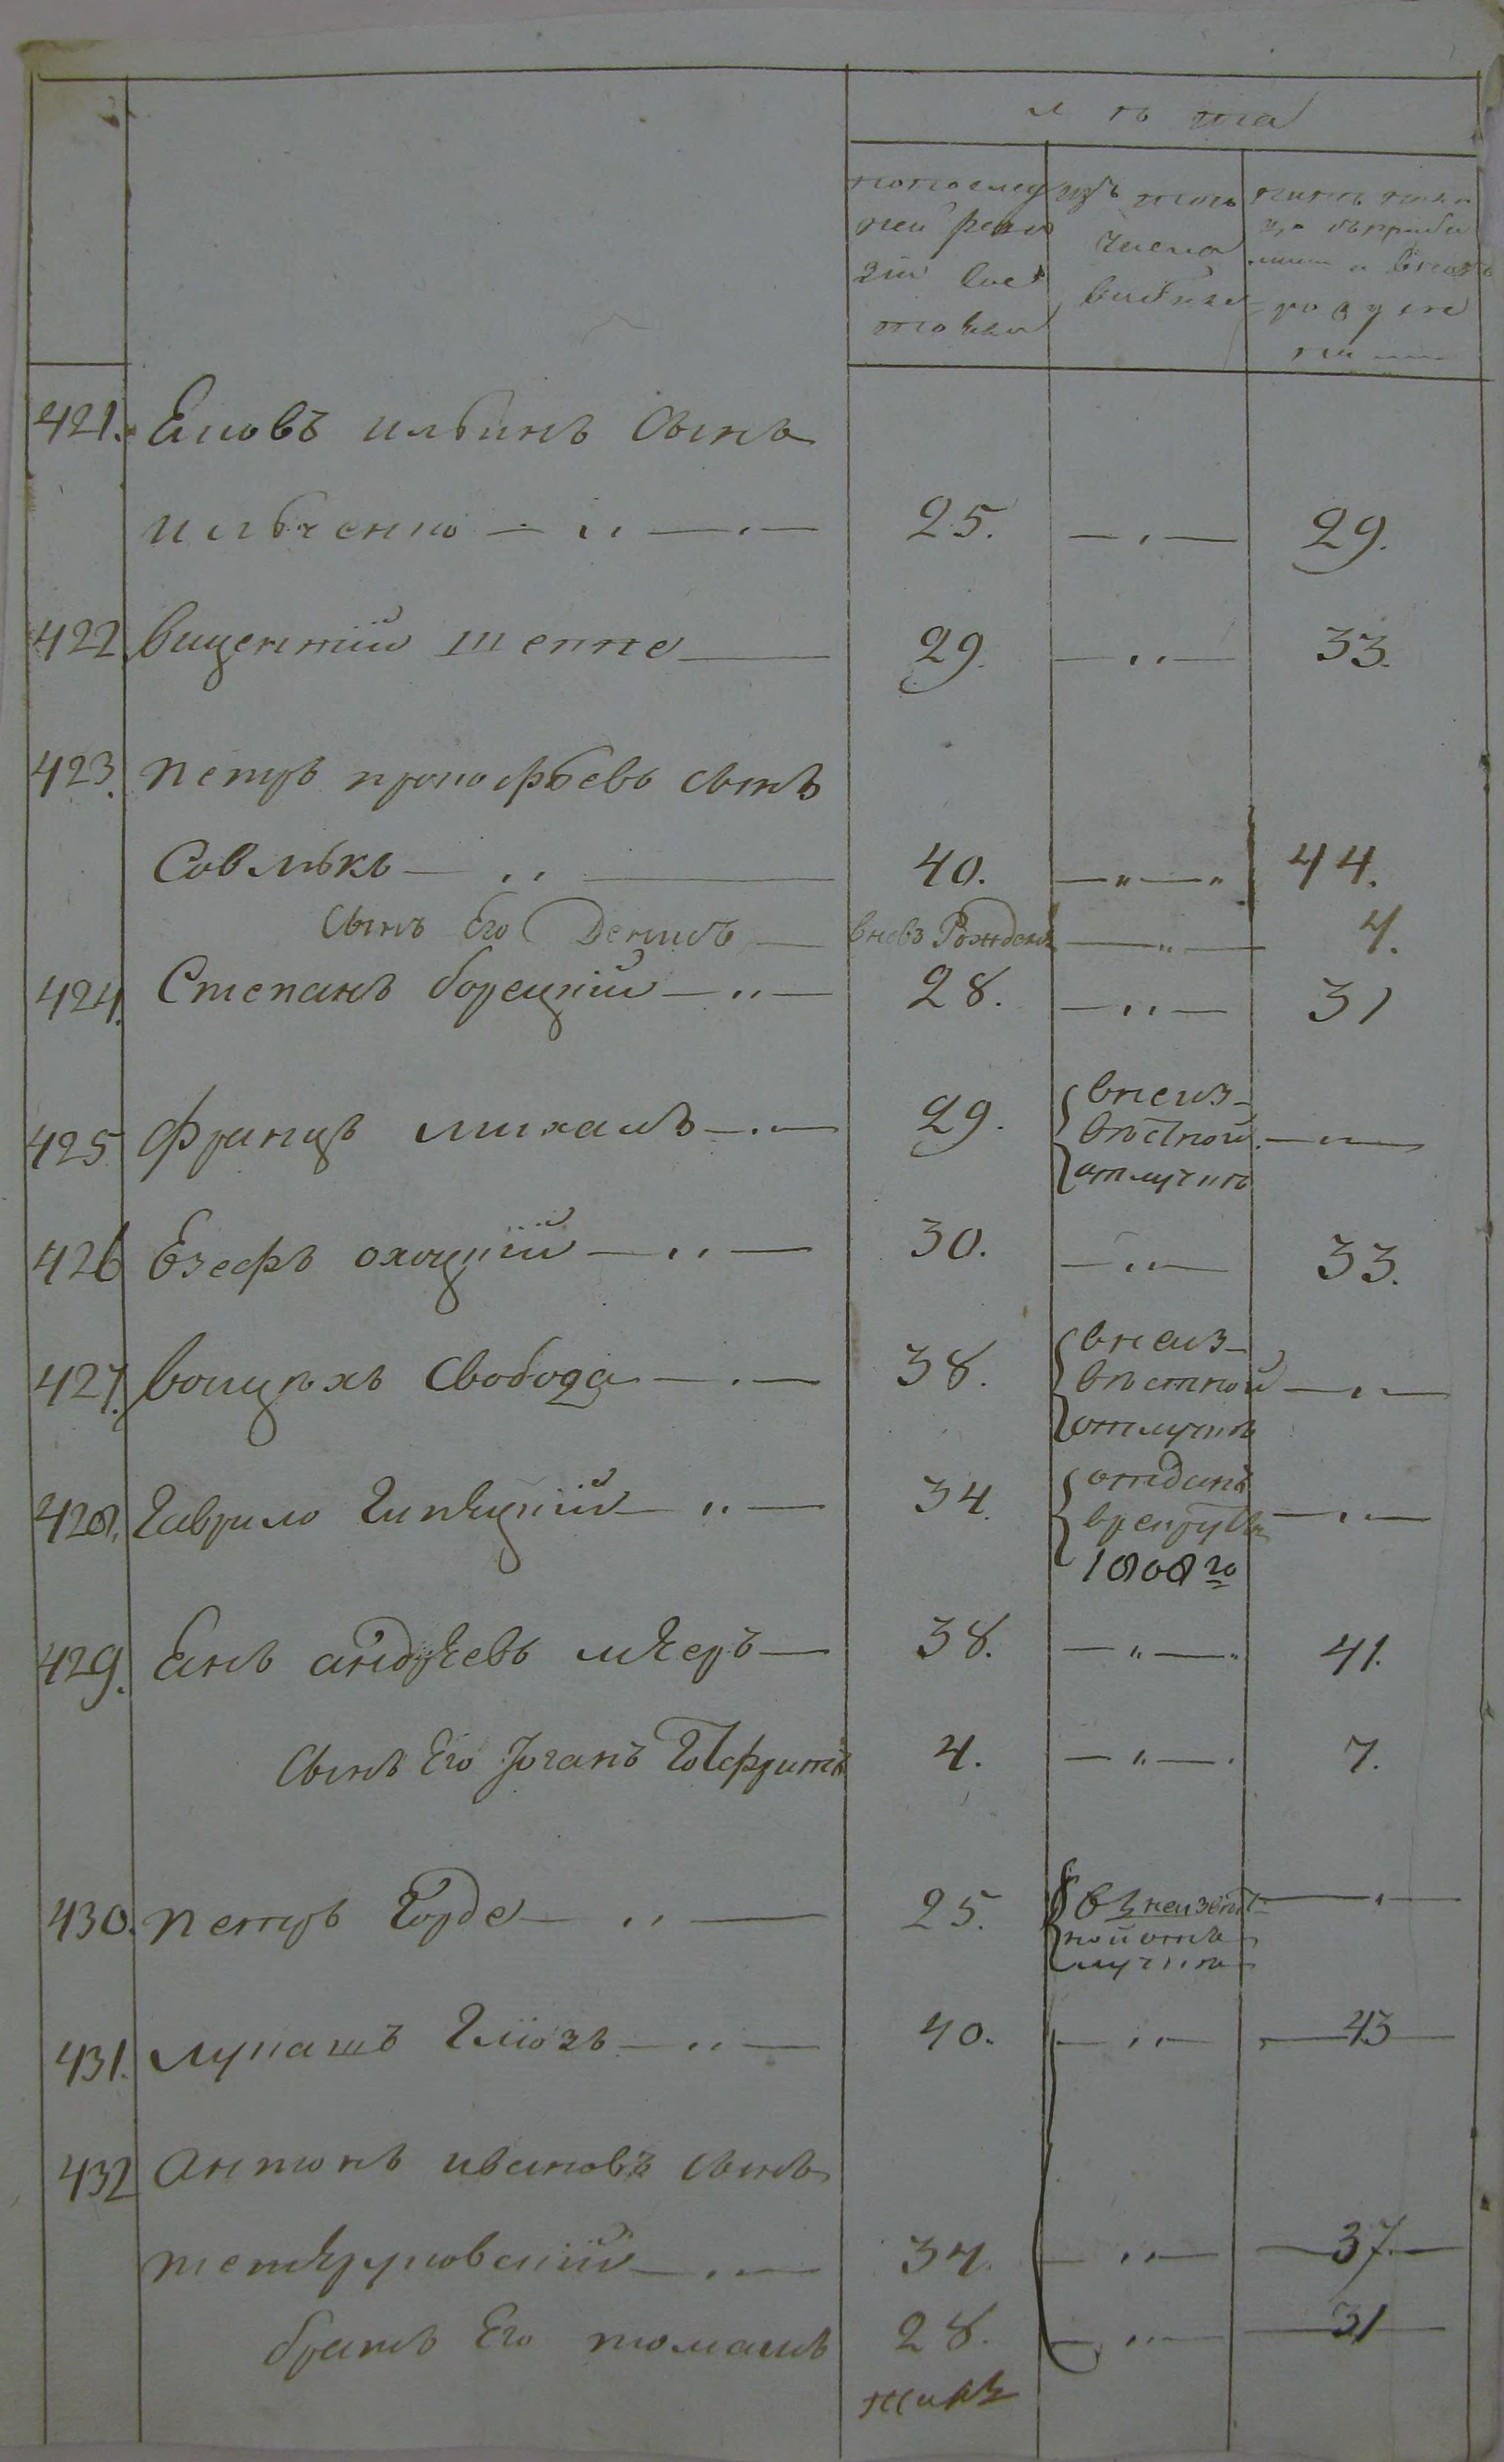 лѣта
попослед
ней реви
зіи сос
тояли
изъ того
числа
выбыло
421. Еновъ ильинъ сынъ
ильченко 25. 29.
422. Вицентій шеппе 29. 33.
423. Петръ прокофьевъ сынъ
Совлѣкъ 40. 44.
сынъ Его Денисъ вновь Рожденъ 4.
424. Степанъ борецкій 28. 31
425 францъ михаль 29. внеиз-
вѣстной
отлучкѣ
426 Езефъ охоцкій 30. 33.
427. воицехъ Свобода 38. внеиз-
вѣстной
отлучкѣ
428. Гаврило 34. отданъ
врекруты
1808го
429. Янъ андреевъ 38. 41.
сынъ Его Іоганъ Готфритъ 4. 7.
430. Петръ Горде 25. въ неизвѣст
ной от
лучкѣ
431. лукашъ Глюзъ 40. 43
432 Антонъ ивановъ сынъ
34. 37.
братъ Его томашъ 28. 31